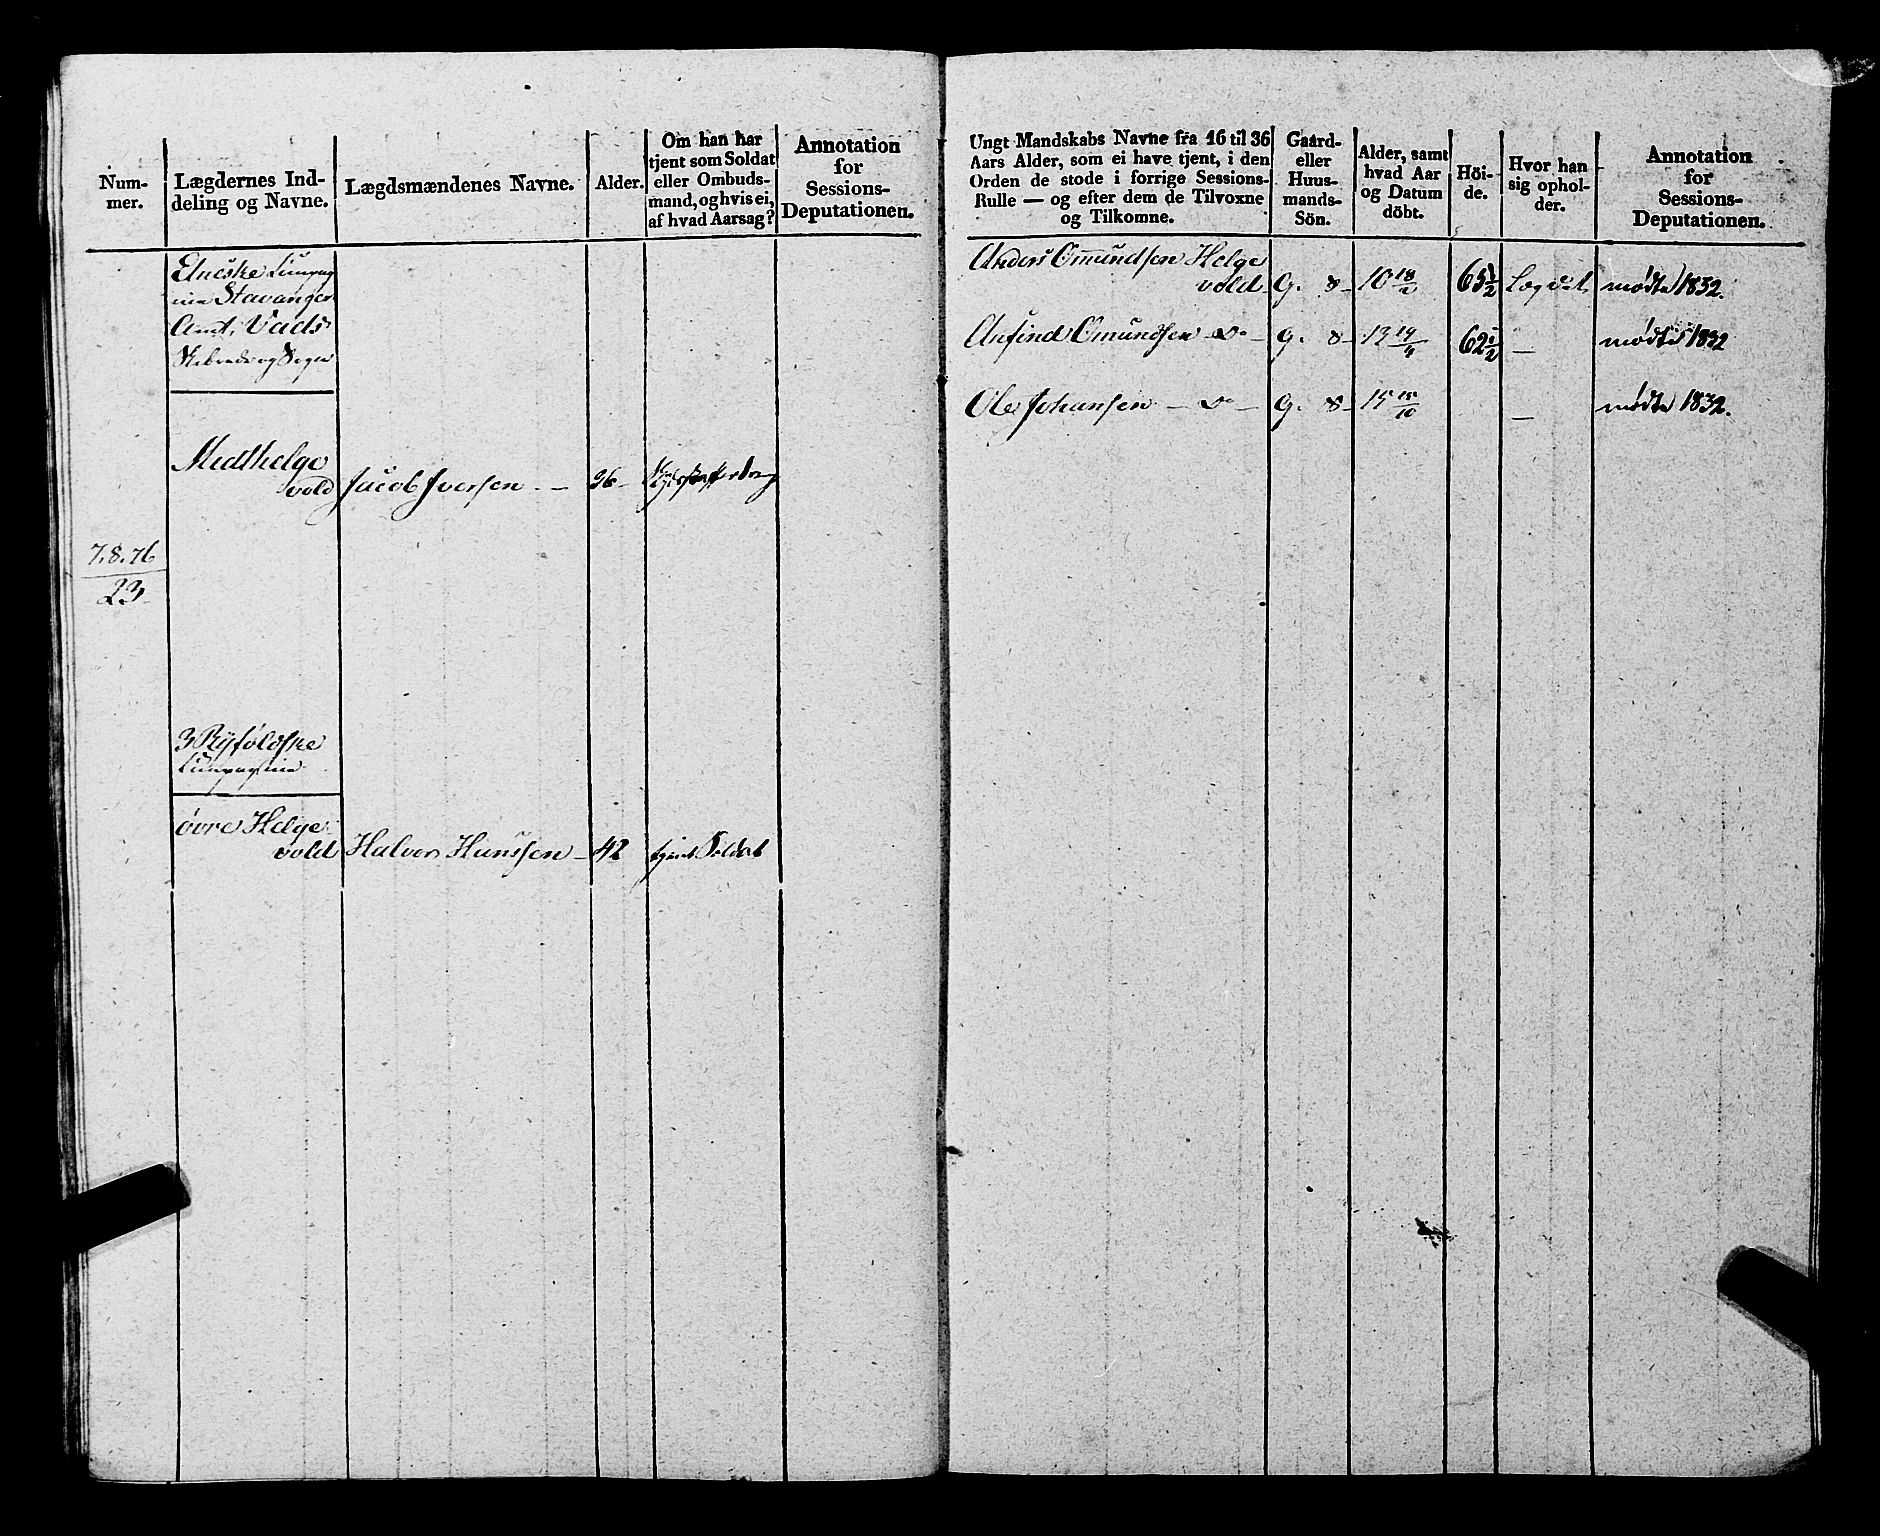 Num-
mer.
Lægdernes Ind-
deling og Navne.
Lægdsmændenes Navne.
Alder.
Om han har
tjent som Soldat
eller Ombuds-
mand, og hvis ei,
af hvad Aarsag?
Annotation
for
Sessions-
Deputationen.
Stavanger
Amt,
Medthelge
vold Jacob Iversen 36
7.8.76
23
3 Ryfoldske
Compagnie
övre Helge
vold Halvor Hansen 42 tjent Soldat
Ungt Mandskabs Navne fra 16 til 36
Aars Alder, som ei have tjent, i den
Orden de stode i forrige Sessions-
Rulle — og efter dem de Tilvoxne
og Tilkomne.
Gaard-
eller
Huus-
mands-
Sön.
Alder, samt
hvad Aar
og Datum
döbt.
Höi-
de.
Hvor han
sig ophol-
der.
Annotation
for
Sessions-
Deputationen.
Anders Omundsen Helge
vold G. 8 10 18/2 65 1/2 Lægdet mødte 1832.
Anfind Omundsen Do G. 8 13 14/4 62 1/2 — mødte 1832
Ole Johansen Do G. 8 15 15/10 — mødte 1832.